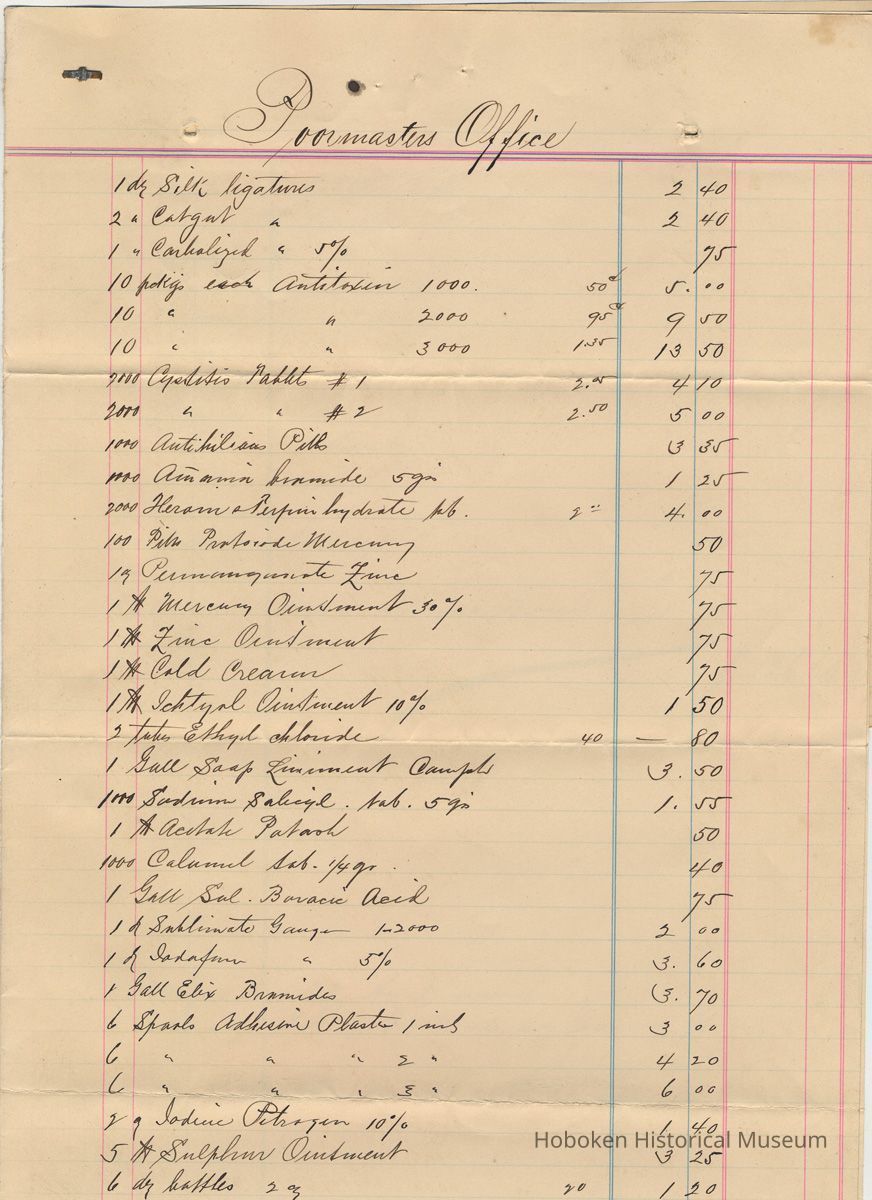 Poormasters Office
1 dz Silk ligatures 2 40
2 " Catgut " 2 40
1 " Carbolized " 5% 75
10 pckgs each Antitoxin 1000. 50c 5.00
10 " " 2000 95c 9 50
10 " " 3000 1.35 13 50
2000 Cystitis Tablets #1 2.05 4 10
2000 " " #2 2.50 5 00
1000 Antibilious Pills 3 35
1000 bromide 5 grs 1 25
2000 Heroin & Terpin hydrate tab. 2 00 4.00
100 Pills Protoiode Mercury 50
1 Permanganate Zinc 75
1 ℔ Mercury Ointment 30% 75
1 ℔ Zinc Ointment 75
1 ℔ Cold Cream 75
1 ℔ Ichtyol Ointment 10% 1 50
2 tubes Ethyl chloride 40 — 80
1 Gall Soap Liniment Camph 3.50
1000 Sodium Salicyl. tab. 5 grs 1.55
1 ℔ Acetate Potash 50
1000 Calomel tab. 1/4 gr. 40
1 Gall Sol. Boracic Acid 75
1 d Sublimate Gauze 1-2000 2 00
1 d Iodoform " 5% 3.60
1 Gall Elix Bromides 3.70
6 Spools Adhesive Plaster 1 inch 3 00
6 " " " 2 " 4 20
6 " " " 3 " 6 00
2 Iodine Petrogen 10% 1 40
5 ℔ Sulphur Ointment 3 25
6 dz bottles 2 20 1 20
Hoboken Historical Museum